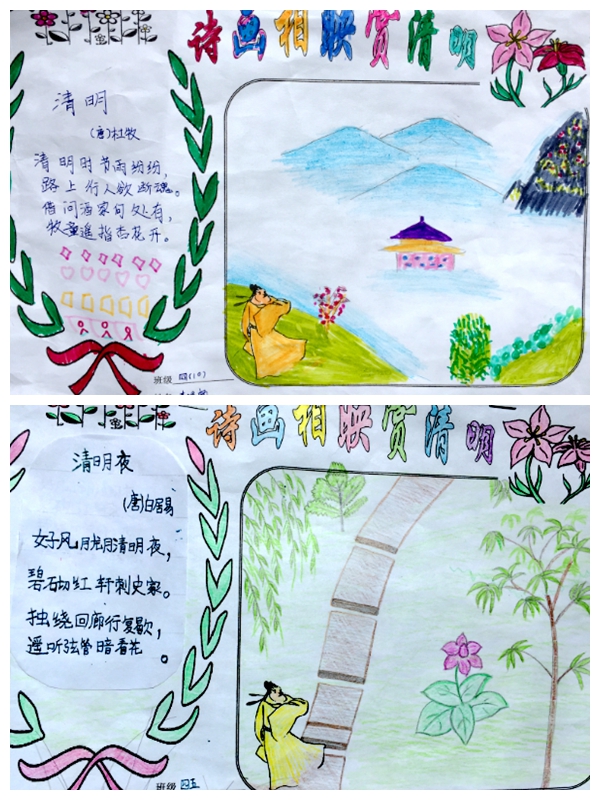 诗画相映赏清明
清明
(唐)杜牧
清明时节雨纷纷,
路上行人欲断魂。
借问酒家何处有,
牧童遥指杏花开。
班级 四(10)
诗画相映赏清明
清明夜
(唐)白居易
好风胧月清明夜,
碧砌红轩刺史家。
独绕回廊行复歇,
遥听弦管暗看花。
班级 四五